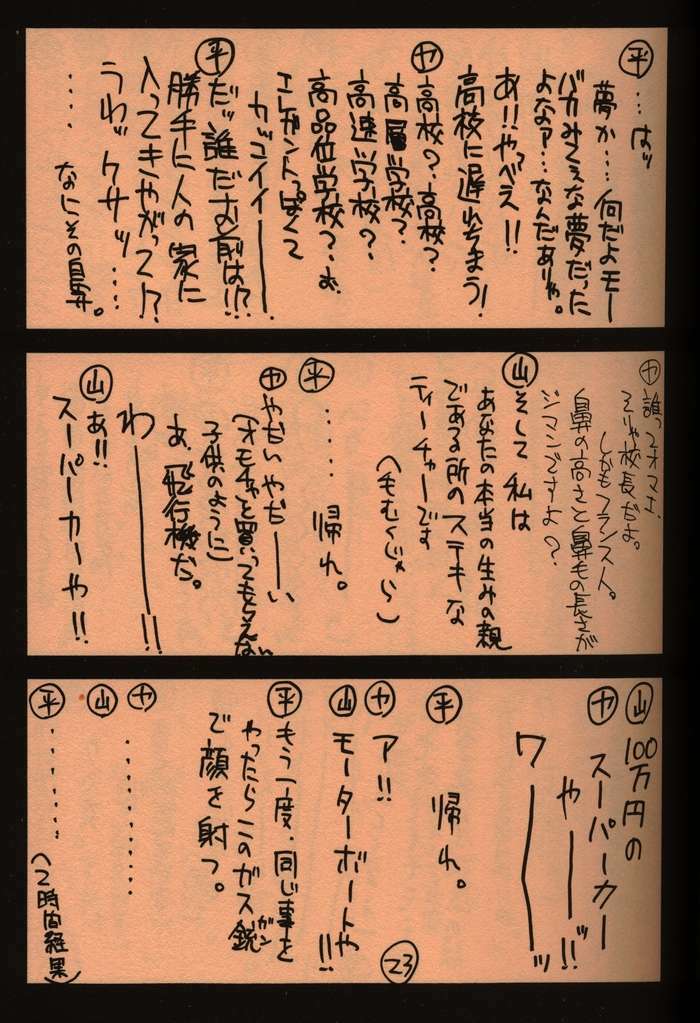 平 …はッ
夢か…何だよモー
バカみてぇな夢だった
よなァ…なんだありゃ。
あ!!やっべえ!!
高校に遅れちまう!
ヤ 高校?高校?
高層学校?
高速学校?
高品位学校?お、
エレガントっぽくて
カッコイイーー
平 だッ誰だお前は!?
勝手に人の家に
入ってきやがって!?
うわックサッ…
…なにその鼻。
ヤ 誰ってオマエ、
そりゃ校長だよ。
しかもフランス人。
鼻の高さと鼻毛の長さが
ジマンですよ?
山 そして私は
あなたの本当の生みの親
である所のステキな
ティーチャーです
(毛むくじゃら)
平 ……帰れ。
ヤ やだいやだーーい
(オモチャを買ってもらえない
子供のように)
あ、飛行機だ。
わーーーー!!
山 あ!!
スーパーカーや!!
山 100万円の
スーパーカー
ヤ やーーッ!!
ワーーーーッ
平 帰れ。
ヤ ア!!
山 モーターボートや!!
平 もう一度、同じ事を
やったらこのガス銃
ガン
で顔を射つ。
ヤ …………
山
平 …………
(2時間経過)
23